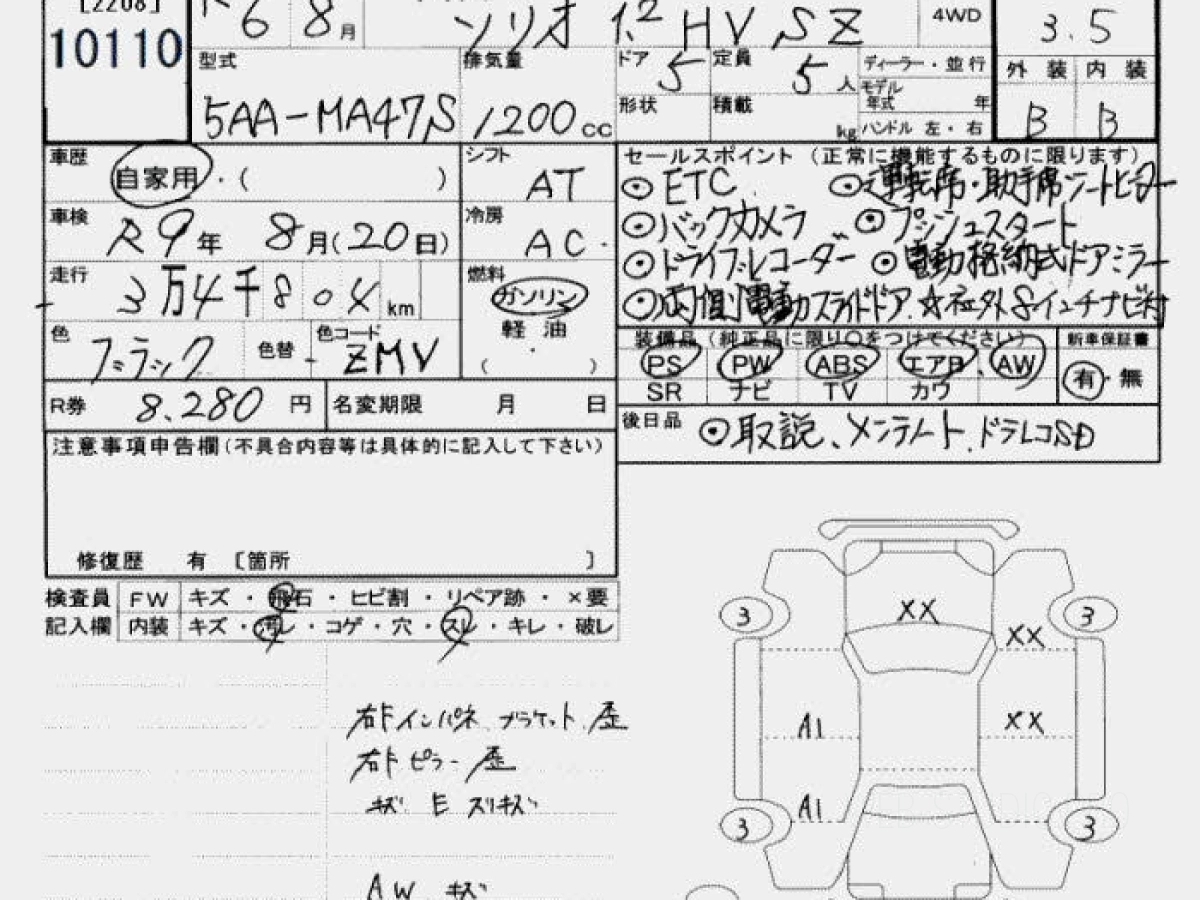 [2208]
10110
6 8月 ソリオ 1.2 HV SZ 4WD 3.5
型式 排気量 ドア 5 定員 5人 ディーラー・並行 外装 内装
5AA-MA47S 1200cc 形状 積載 kg モデル年式 年 ハンドル 左・右 B B
車歴 自家用・( ) シフト AT
車検 R9年 8月(20日) 冷房 AC
走行 3万4千8 0 4 km 燃料 ガソリン
軽油
( )
色 ブラック 色替 色コード ZMV
R券 8.280円 名変期限 月 日
セールスポイント (正常に機能するものに限ります)
⊙ETC ⊙運転席・助手席シートヒーター
⊙バックカメラ ⊙プッシュスタート
⊙ドライブレコーダー ⊙電動格納式ドアミラー
⊙両側電動スライドドア ☆社外8インチナビ付
装備品 (純正品に限り○をつけてください) 新車保証書
PS PW ABS エアB AW 有・無
SR ナビ TV カワ
後日品 ⊙取説、メンテノート、ドラレコSD
注意事項申告欄(不具合内容等は具体的に記入して下さい)
修復歴 有 〔箇所 〕
検査員 FW キズ・飛石・ヒビ割・リペア跡・×要
記入欄 内装 キズ・汚レ・コゲ・穴・スレ・キレ・破レ
右Fインパネ ブラケット 歴
右Fピラー歴
キズ E スリキズ
AW キズ
3 XX XX 3
A1 XX
A1
3 3